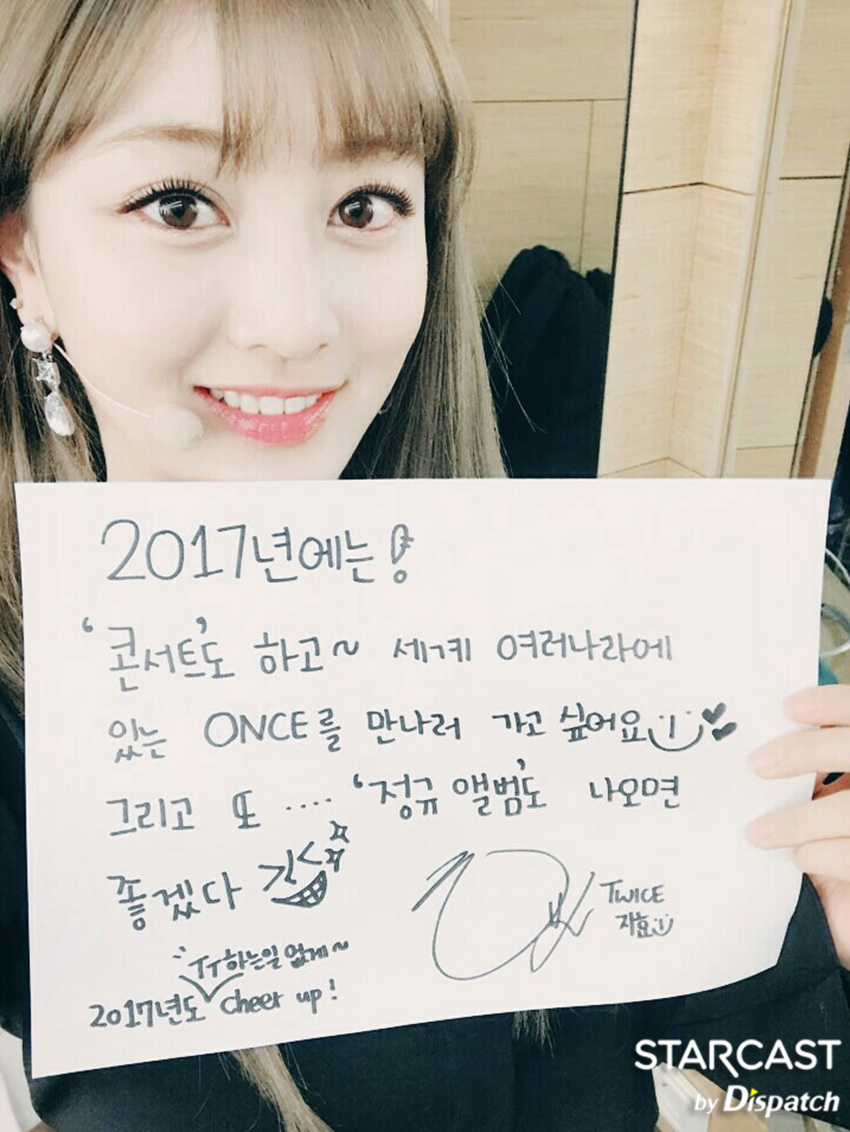 2017년에는!
'콘서트'도 하고~ 세계 여러나라에
있는 ONCE를 만나러 가고 싶어요
그리고 또 .... '정규 앨범'도 나오면
좋겠다
TWICE
지효
TT하는일 없게~
2017년도 cheer up!
STARCAST
by Dispatch